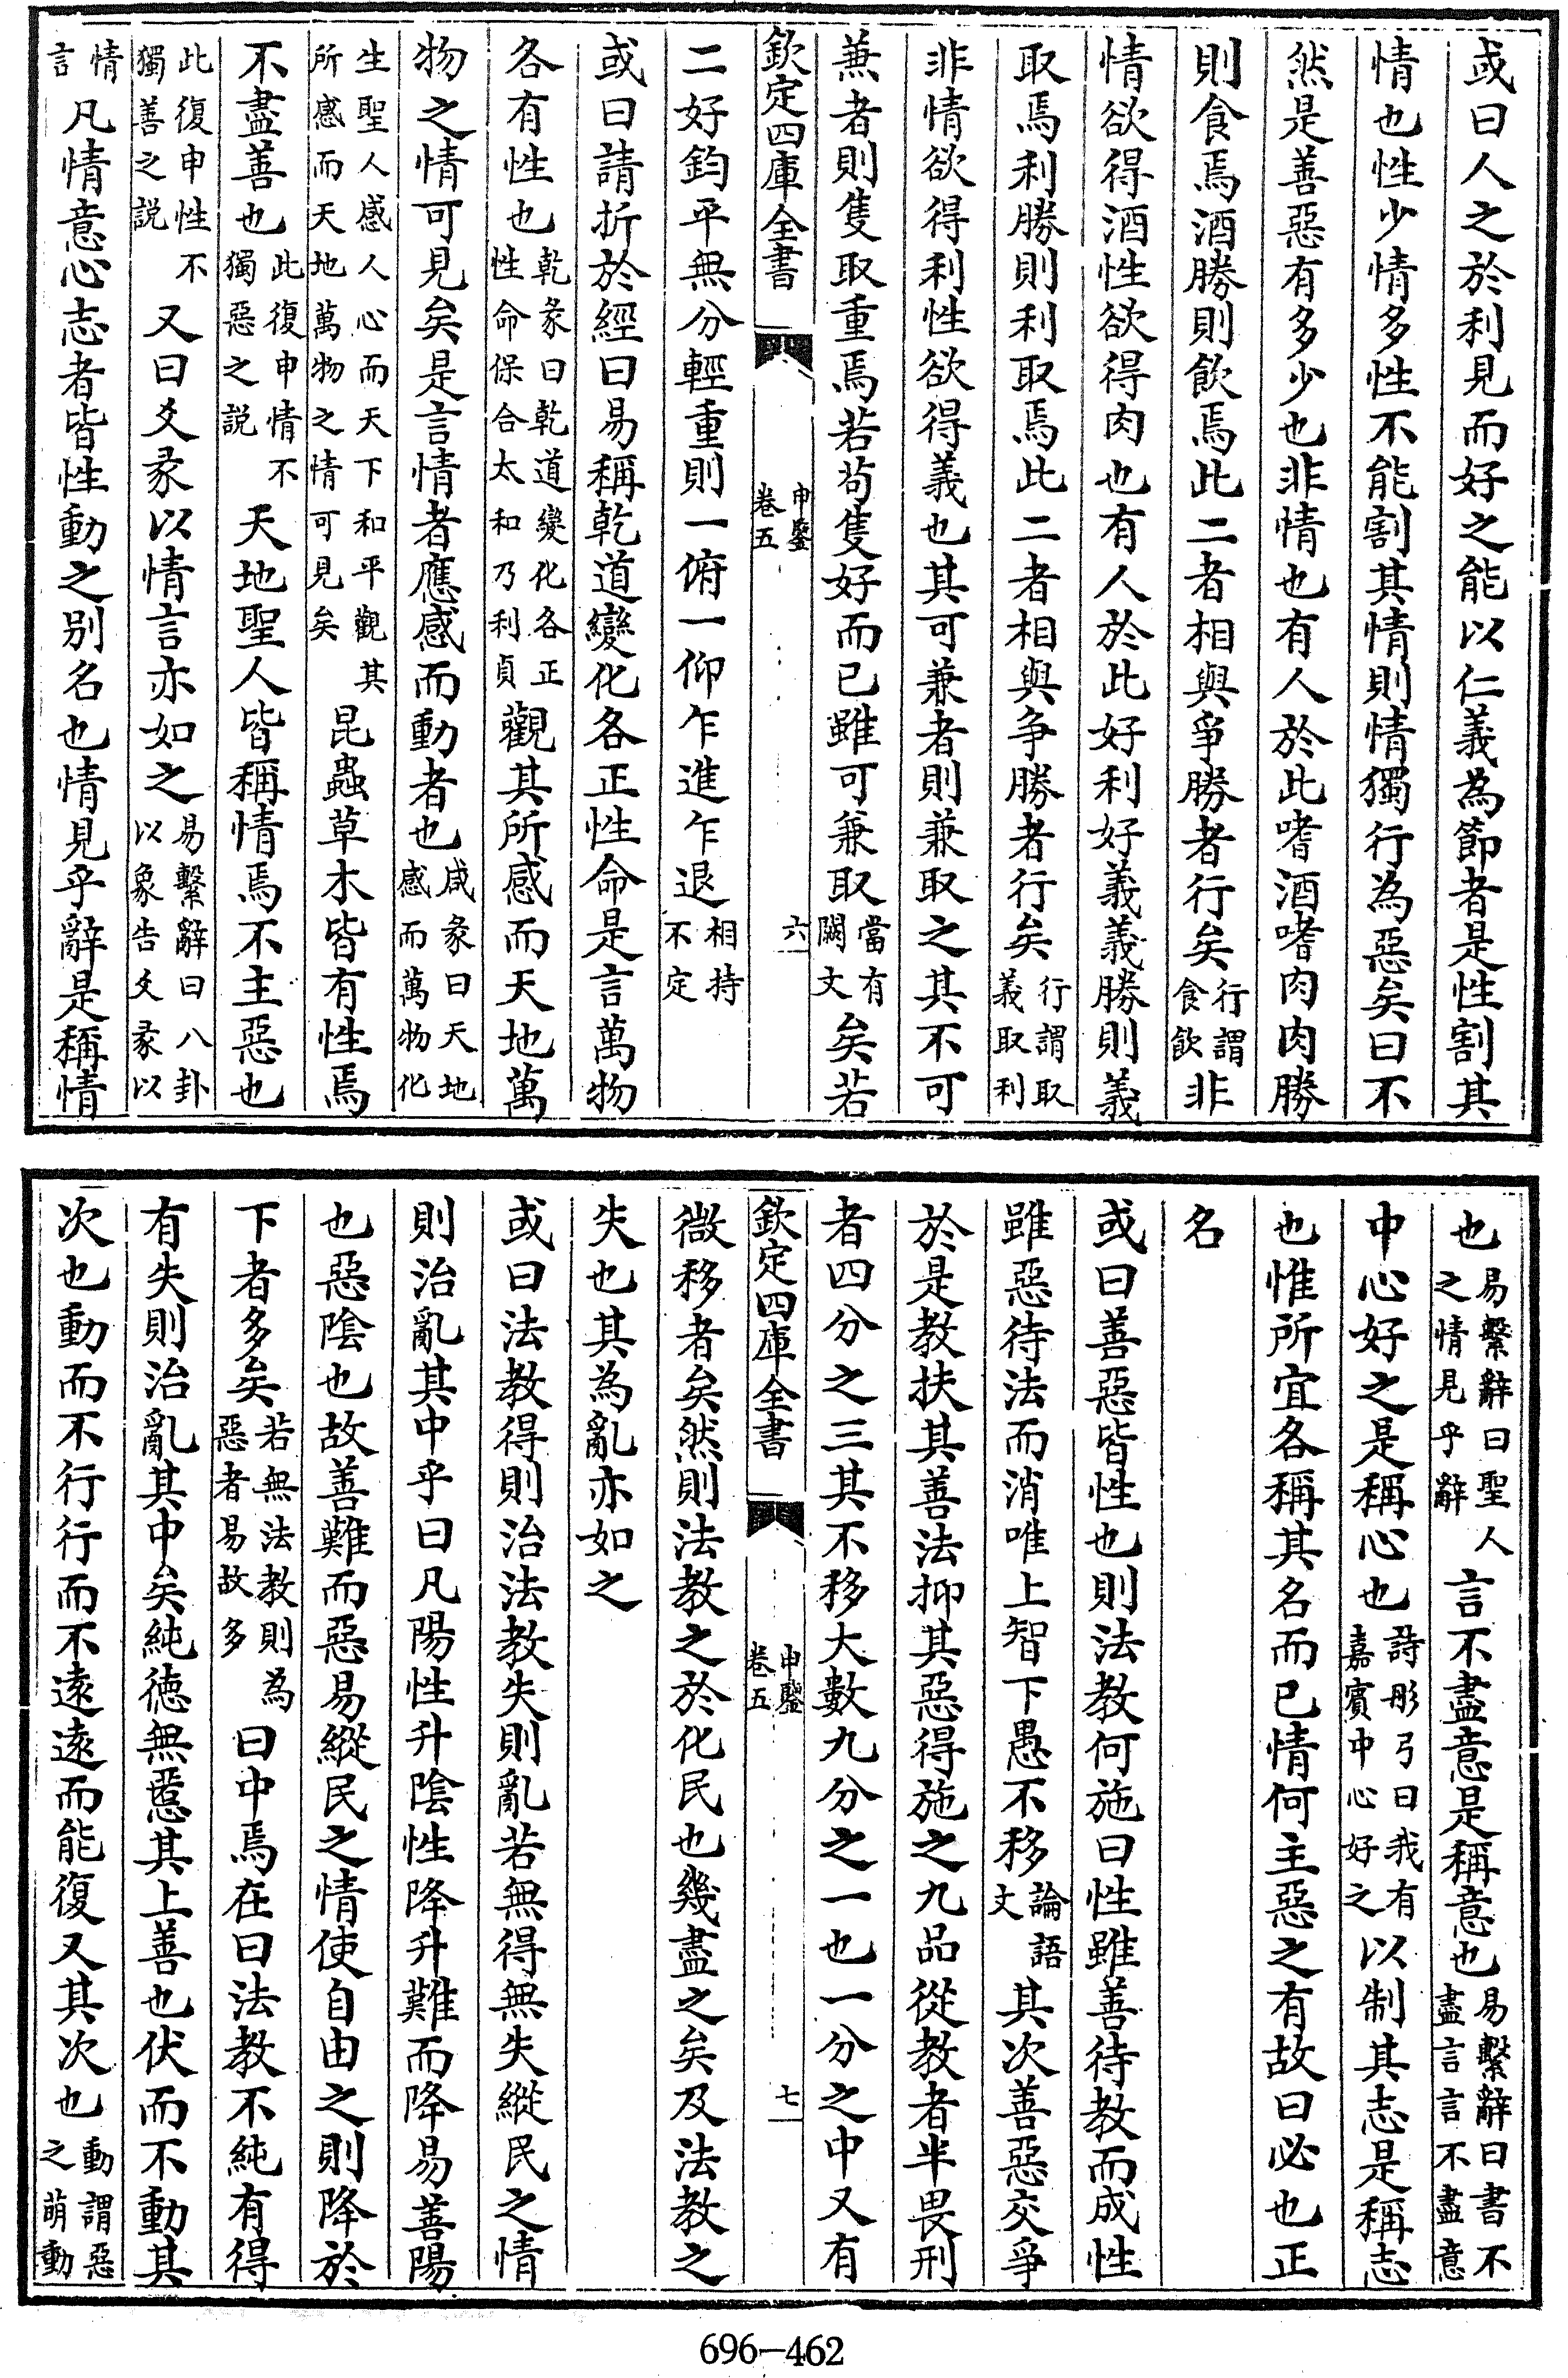 或曰人之於利見而好之能以仁義為節者是性割其
情也性少情多性不能割其情則情獨行為惡矣曰不
然是善惡有多少也非情也有人於此嗜酒嗜肉肉勝
則食焉酒勝則飲焉此二者相與爭勝者行矣行謂食飲非
情欲得酒性欲得肉也有人於此好利好義義勝則義
取焉利勝則利取焉此二者相與爭勝者行矣行謂取義取利
非情欲得利性欲得義也其可兼者則兼取之其不可
兼者則隻取重焉若苟隻好而已雖可兼取當有闕文矣若
欽定四庫全書 申鑒卷五 六
二好鈞平無分輕重則一俯一仰乍進乍退相持不定
或曰請折於經曰易稱乾道變化各正性命是言萬物
各有性也乾彖曰乾道變化各正性命保合太和乃利貞觀其所感而天地萬
物之情可見矣是言情者應感而動者也咸彖曰天地感而萬物化
生聖人感人心而天下和平觀其所感而天地萬物之情可見矣昆蟲草木皆有性焉
不盡善也此復申情不獨惡之說天地聖人皆稱情焉不主惡也
此復申性不獨善之説又曰爻彖以情言亦如之易繫辭曰八卦以象告爻彖以
情言凡情意心志者皆性動之別名也情見乎辭是稱情
也易繫辭曰聖人之情見乎辭言不盡意是稱意也易繫辭曰書不盡言言不盡意
中心好之是稱心也詩彤弓曰我有嘉賓中心好之以制其志是稱志
也惟所宜各稱其名而已情何主惡之有故曰必也正
名
或曰善惡皆性也則法教何施曰性雖善待教而成性
雖惡待法而消唯上智下愚不移論語文其次善惡交爭
於是教扶其善法抑其惡得施之九品從教者半畏刑
者四分之三其不移大數九分之一也一分之中又有
欽定四庫全書 申鑒卷五 七
微移者矣然則法教之於化民也幾盡之矣及法教之
失也其為亂亦如之
或曰法教得則治法教失則亂若無得無失縱民之情
則治亂其中乎曰凡陽性升陰性降升難而降易善陽
也惡陰也故善難而惡易縱民之情使自由之則降於
下者多矣若無法教則為惡者易故多曰中焉在曰法教不純有得
有失則治亂其中矣純德無慝其上善也伏而不動其
次也動而不行行而不遠遠而能復又其次也動謂惡之萌動
696-462